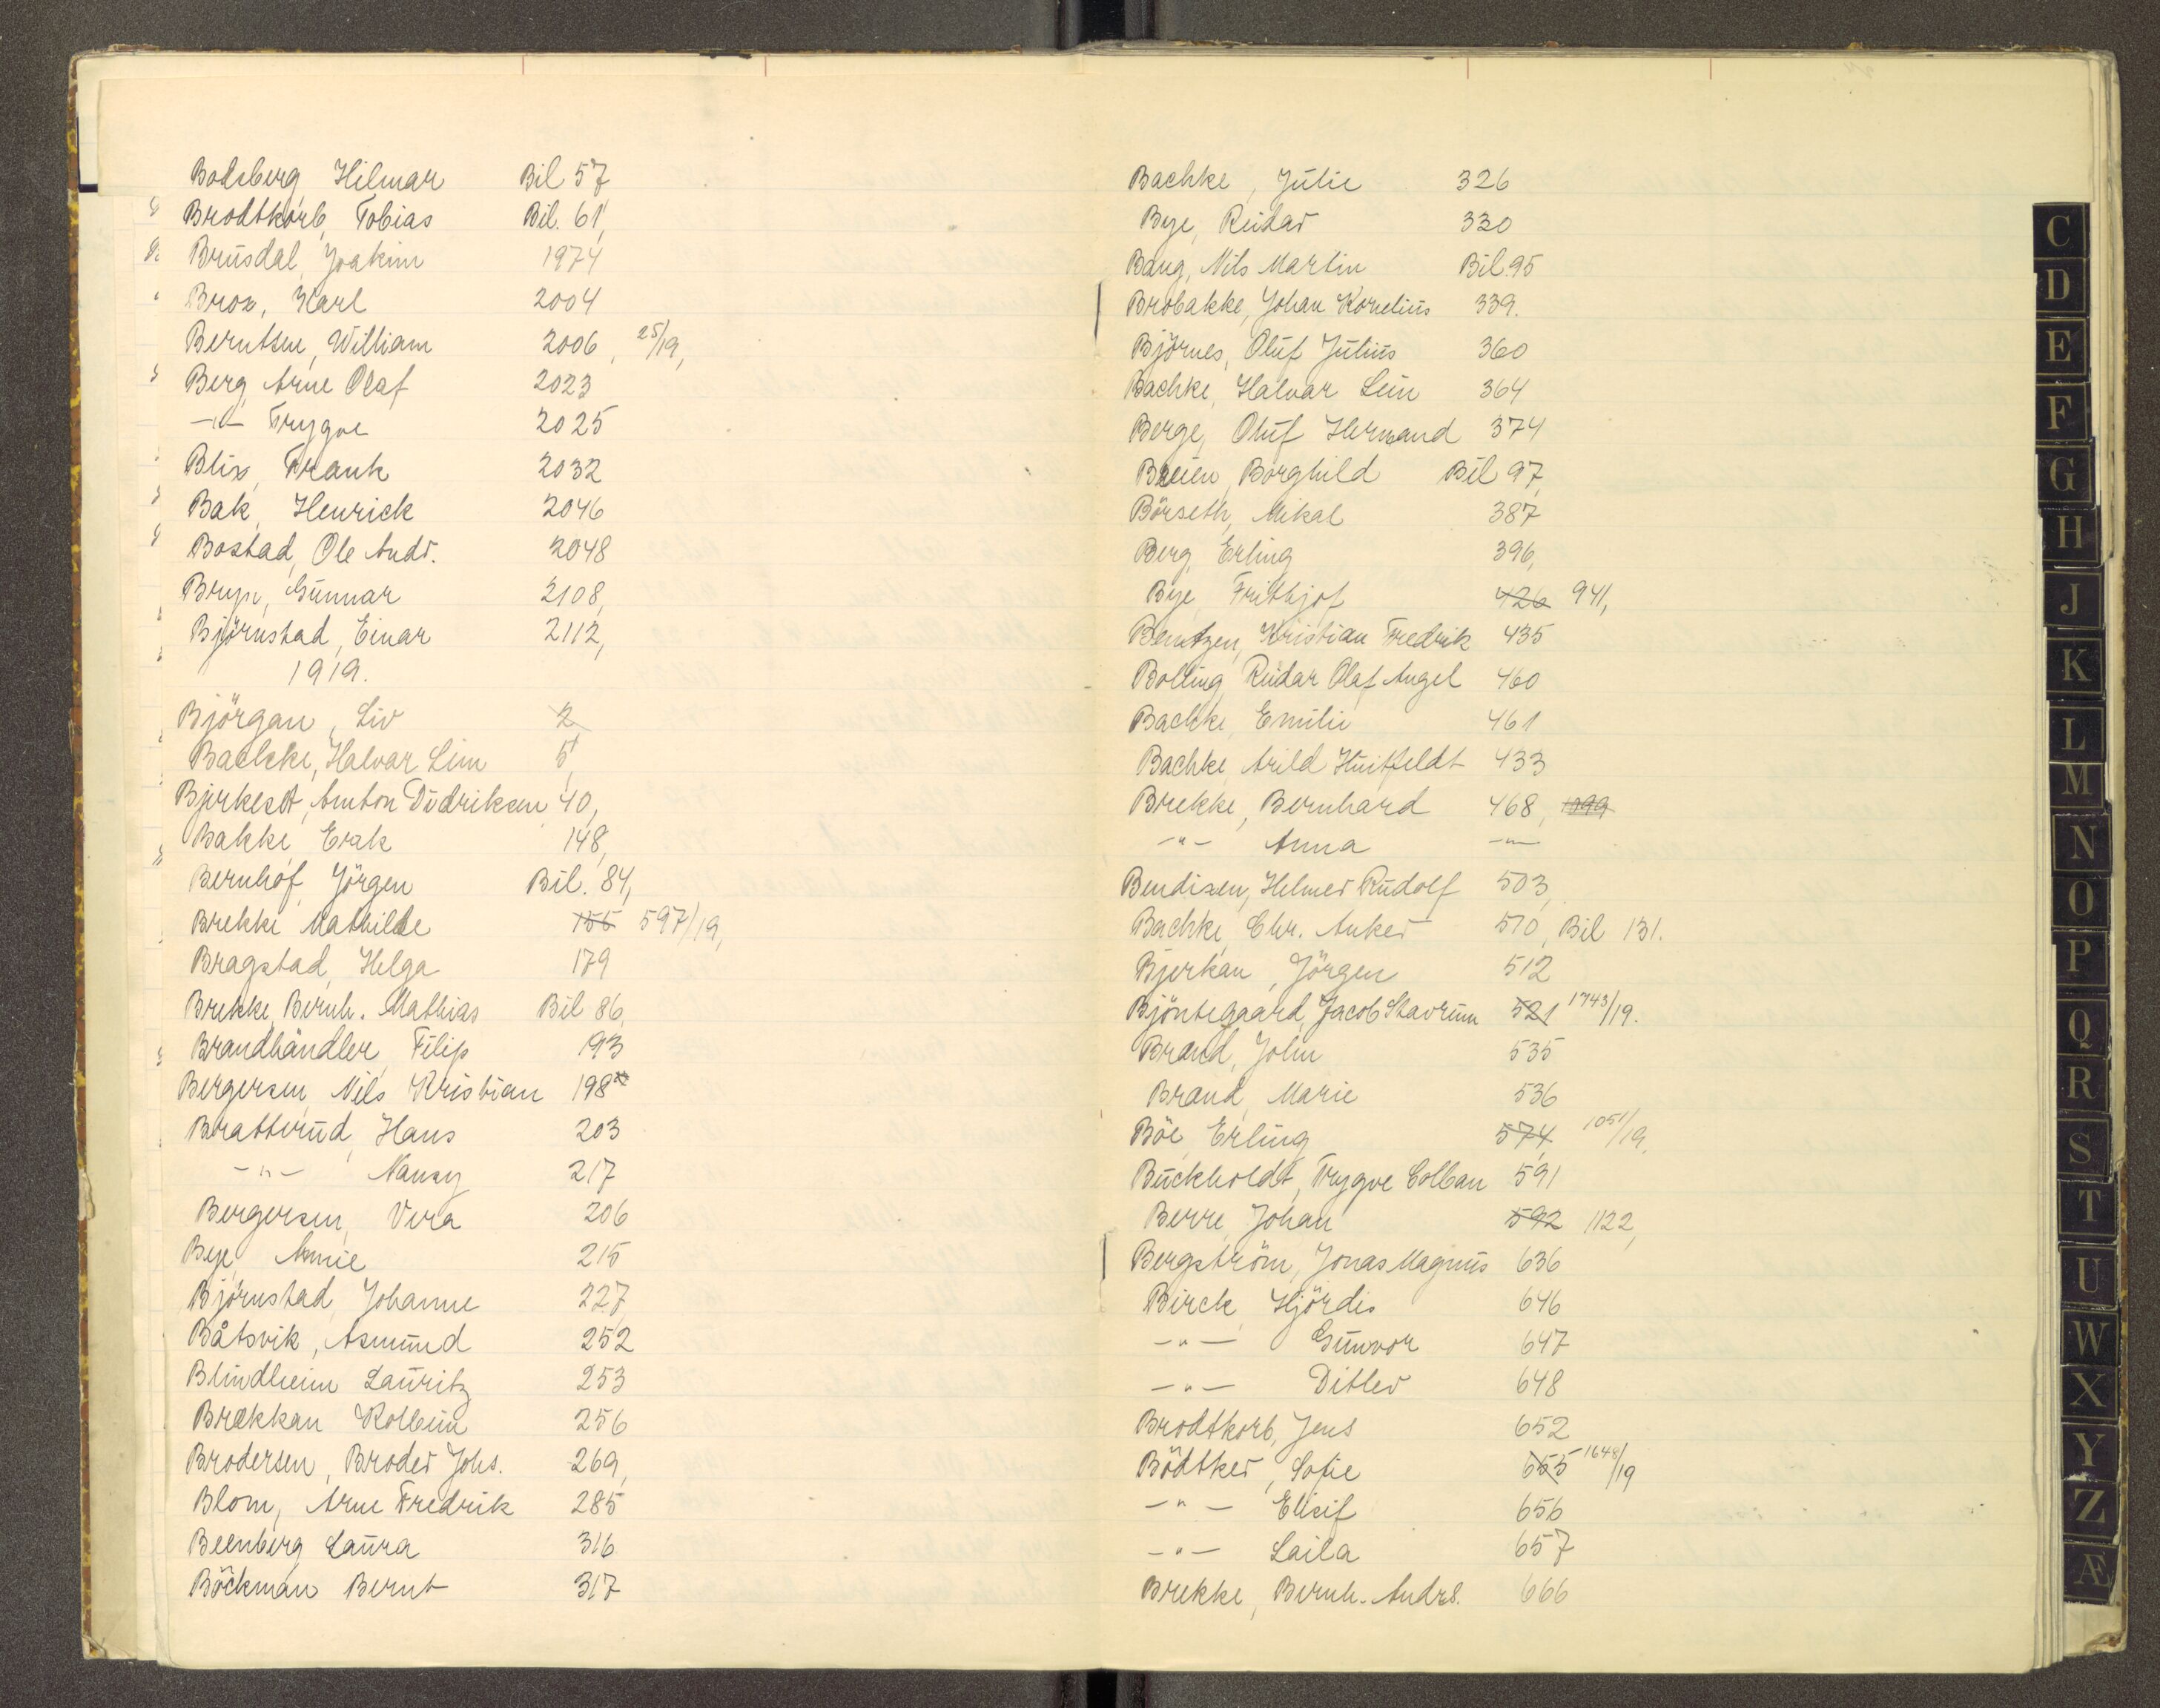 Bodsberg, Hilmar Bil 57
Brodtkorb, Tobias Bil. 61,
Brusdal, Joakim 1974
Brox, Karl 2004
Berntsen, William 2006, 25/19,
Berg, Arne Olaf 2023
-"- Trygve 2025
Blix, Frank 2032
Bak, Henrick 2046
Bostad, Ole Andr. 2048
Bryn, Gunnar 2108,
Björnstad, Einar 2112,
1919.
Björgan, Liv 2
Bachke, Halvar Lein 5,
Bjerkeset, Anton Didriksen 40,
Bakke, Erik 148,
Bernhof, Jörgen Bil. 84,
Brekke Mathilde 155 597/19,
Bragstad, Helga 179
Brekke, Bernh. Mathias Bil 86,
Brandhändler, Filip 193
Bergersen, Nils Kristian 198
Bratterud, Hans 203
-"- Nancy 217
Bergersen, Vera 206
Bye, Annie 215
Björnstad, Johanne 227,
Båtsvik, Asmund 252
Blindheim Lauritz 253
Brækkan Kolbein 256
Brodersen, Broder Johs. 269,
Blom, Arne Fredrik 285
Beenberg Laura 316
Böckman Bernt 317
Bachke, Julie 326
Bye, Reidar 330
Bang, Nils Martin Bil 95
Brobakke, Johan Kornelius 339.
Björnes, Oluf Julius 360
Bachke, Halvar Lein 364
Berge, Oluf Hermand 374
Breien, Borghild Bil 97,
Börseth, Mikal 387
Berg, Erling 396,
Bye, Frithjof 426 941,
Berntzen, Kristian Fredrik 435
Bolling, Reidar Olaf Angel 460
Bachke, Emilie 461
Bachke, Arild Huitfeldt 433
Brekke, Bernhard 468, 1099
-"- Anna -"-
Bendixen, Helmer Rudolf 503,
Bachke, Chr. Anker 510, Bil 131.
Bjerkan, Jörgen 512
Bjöntegaard, Jacob Stavrum 521 1743/19.
Brand, John 535
Brand, Marie 536
Böe, Erling 574 1051/19.
Buckholdt, Trygve Colban 591
Berre, Johan 592 1122,
Bergström, Jonas Magnus 636
Birck, Hjördis 646
-"- Gunvor 647
-"- Ditlev 648
Brodtkorb, Jens 652
Bödtker, Sofie 655 1648/19
-"- Elisif 656
-"- Laila 657
Brekke, Bernh. Andrs. 666
C
D
E
F
G
H
J
K
L
M
N
O
P
Q
R
S
T
U
W
X
Y
Z
Æ